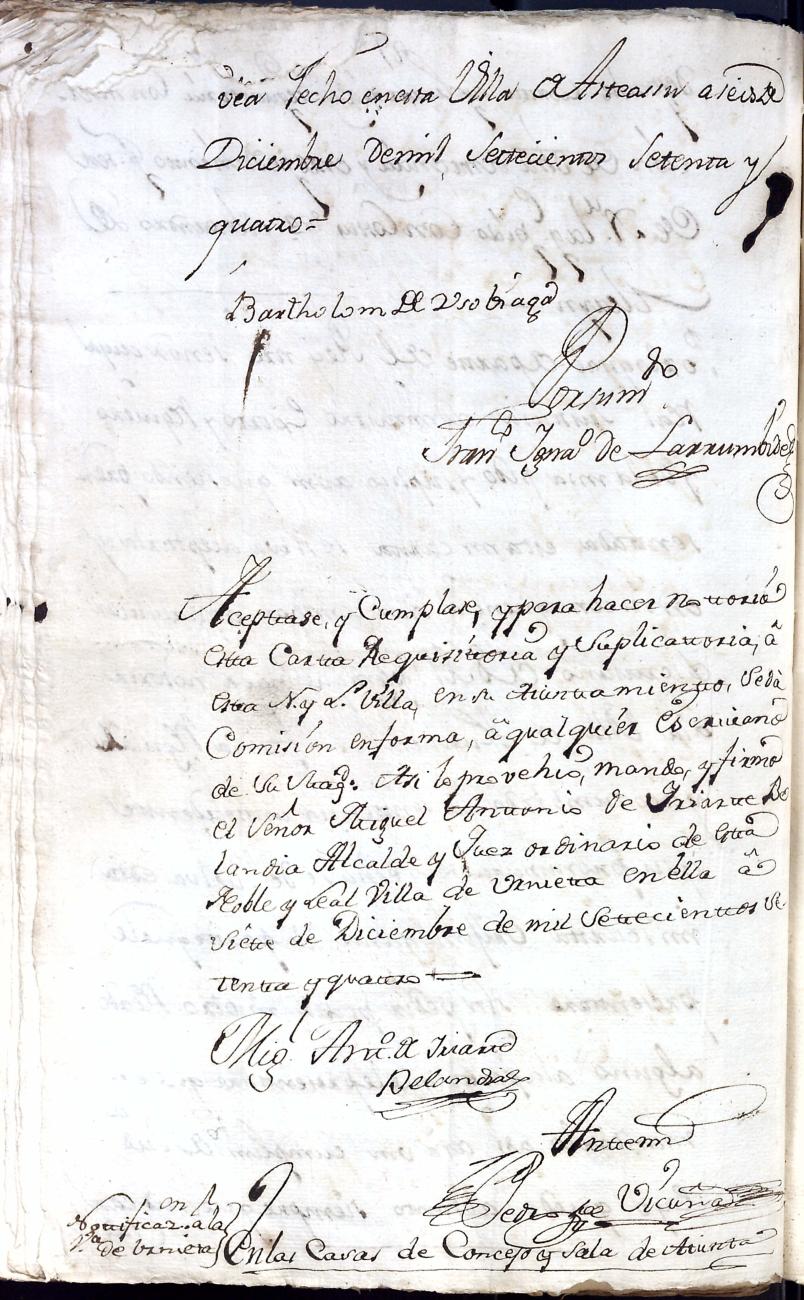 vea fecho en esta Villa de Asteasu a seis de
Diciembre de mil settecientos Setenta y
quatro=
Bartholomé de Usobiaga
Por su mdo
Franco Igno de Larrumbide
Aceptase, y Cumplase, y para hacer nottorio
esta Carta Requisittoria y Suplicattoria, â
esta N. y L. Villa, en su Aiuntamientto, Se dà
Comisión en forma, â qualquiér Escrivano
de Su Magd. Asi lo provehió, mando, y firmó
el Señor Miguel Antonio de Iriarte Be
landia Alcalde y Juez ordinario de esta
Noble y Leal Villa de Urnietta en ella â
Siette de Diciembre de mil Settecienttos se
tenta y quattro
Migl Anto. de Iriarte
Belandia
Antemi
Pedro Jph Vicuña
Nottificazon a la
Va de Urnieta
En las Casas de Concejo y Sala de Aiunta